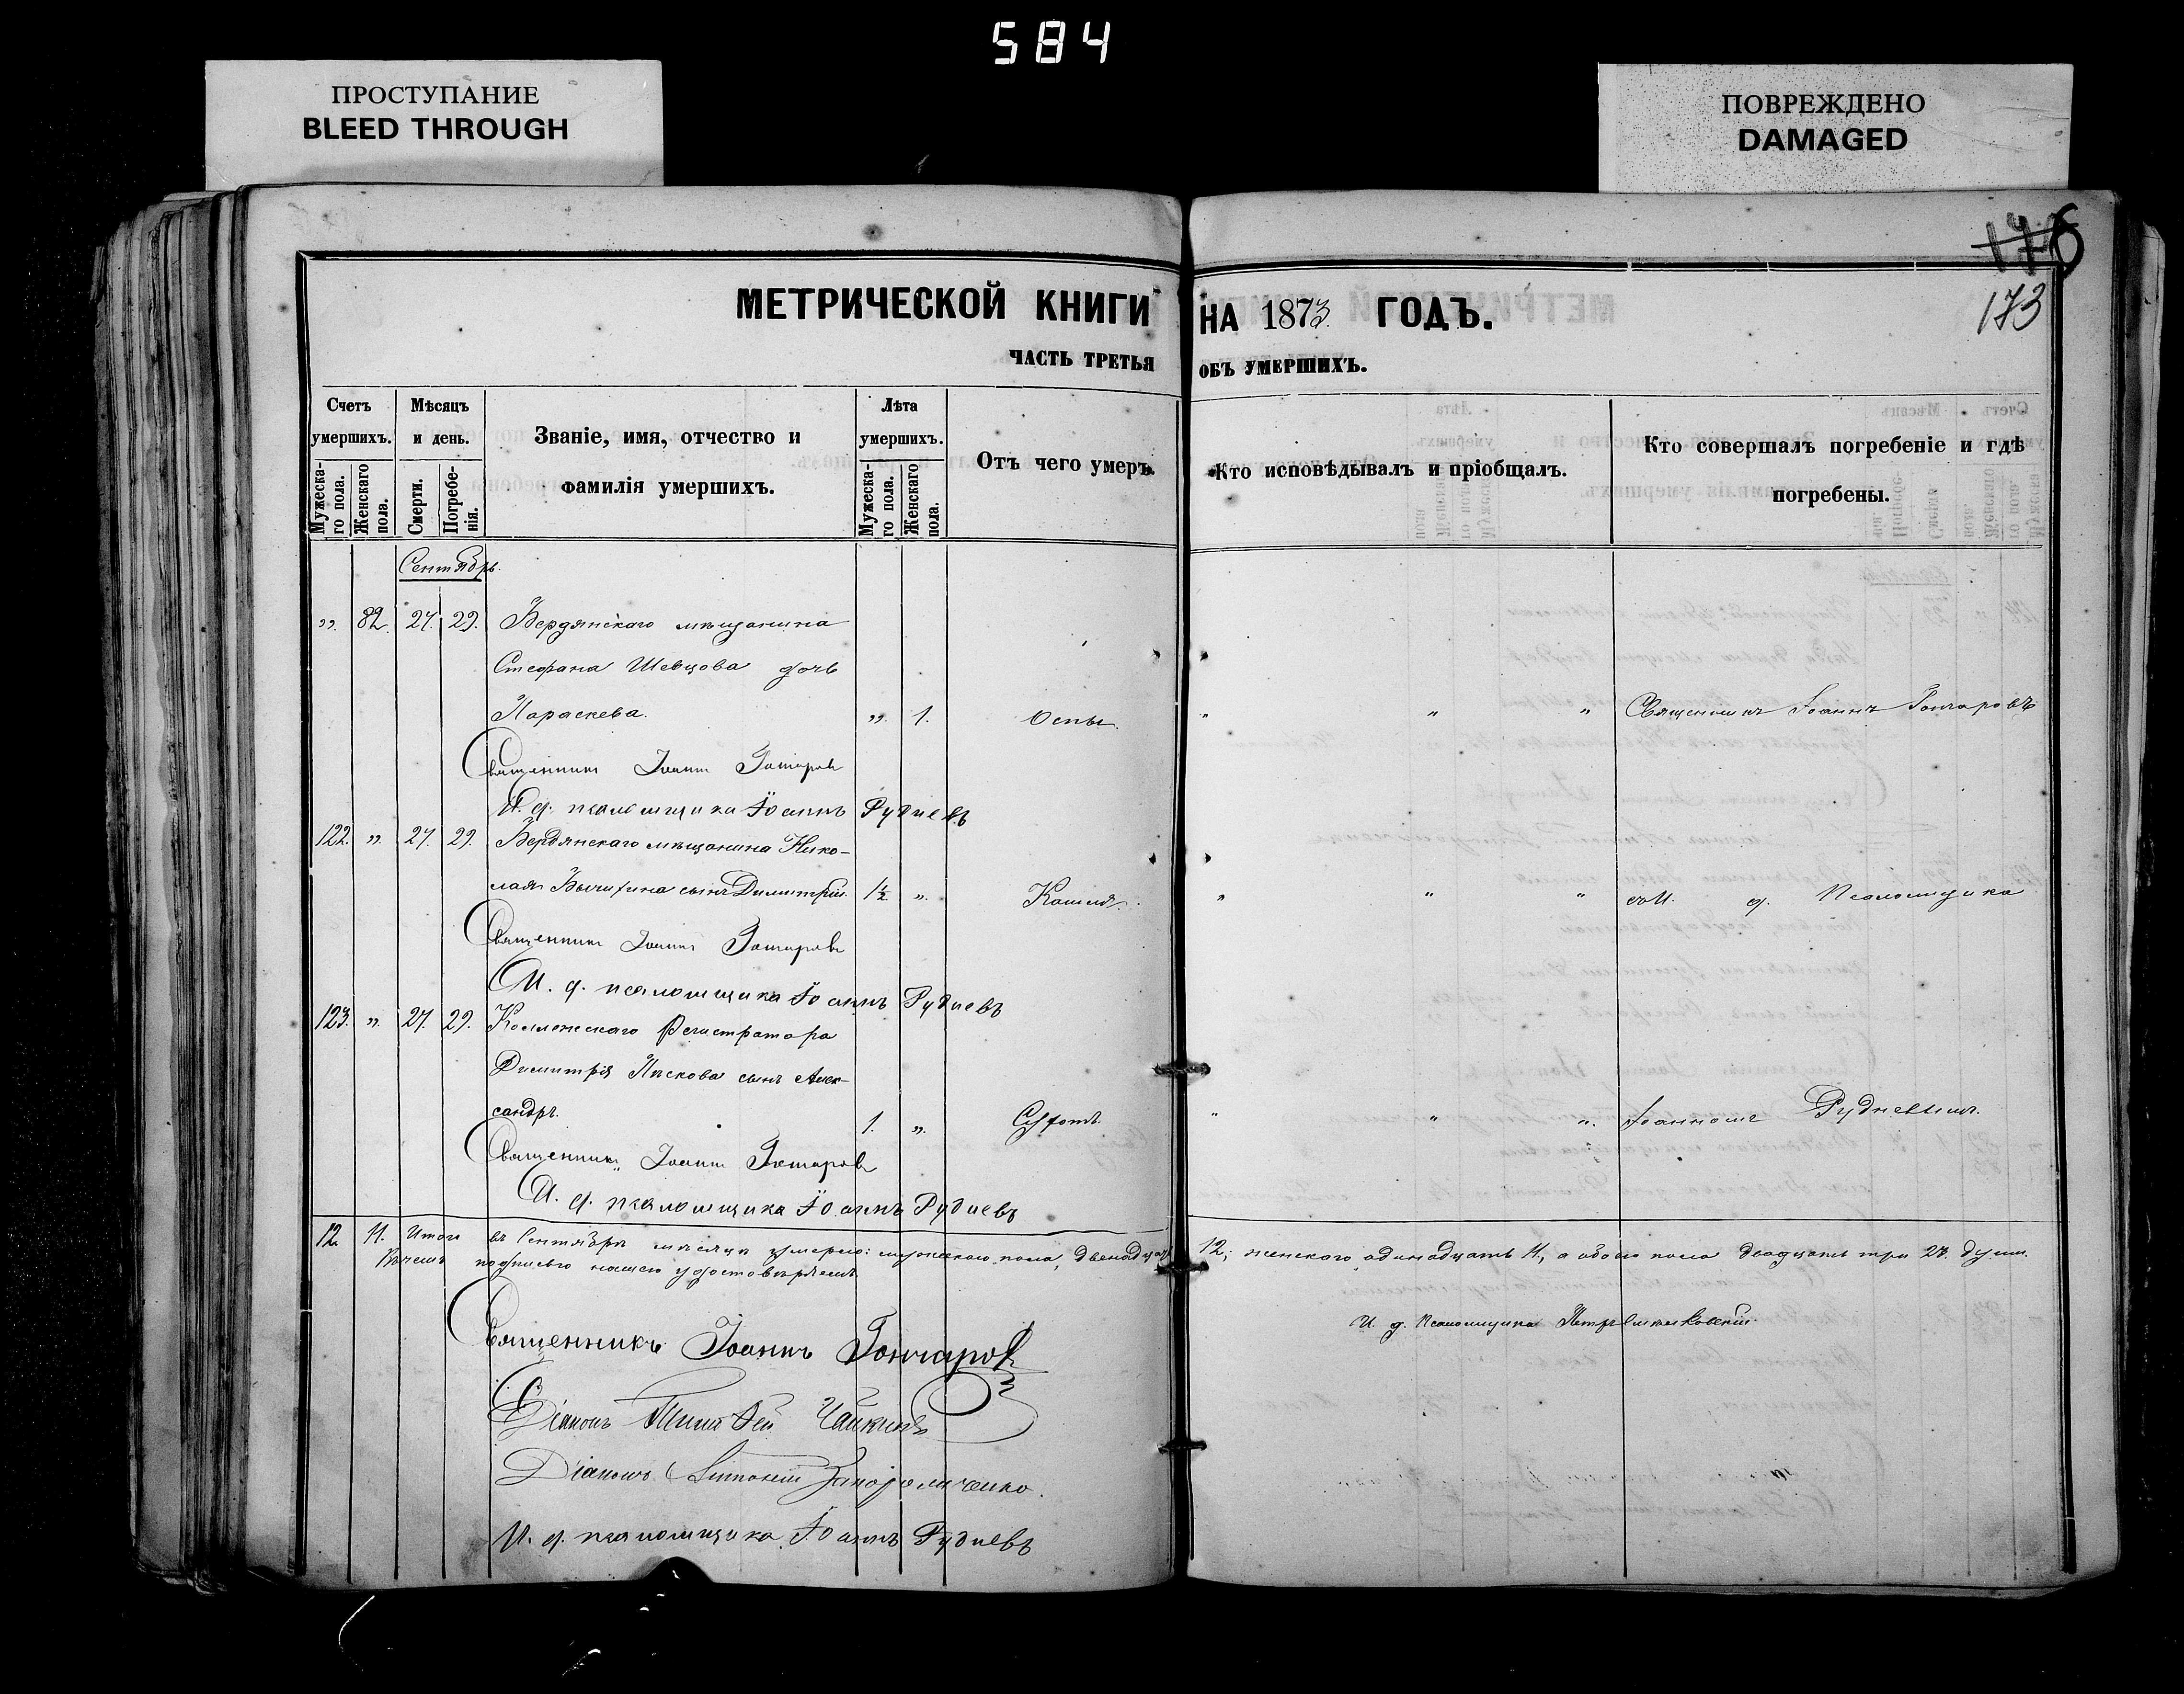 584
ПРОСТУПАНИЕ
BLEED THROUGH
ПОВРЕЖДЕНО
DAMAGED
176
173
МЕТРИЧЕСКОЙ КНИГИ НА 1873 ГОДЪ.
ЧАСТЬ ТРЕТЬЯ ОБЪ УМЕРШИХЪ.
Счетъ умершихъ.
Мужескаго пола.
Женскаго пола.
Мѣсяцъ и день.
Смерти.
Погребенія.
Званіе, имя, отчество и
фамилія умершихъ.
Лѣта умершихъ.
Мужескаго пола.
Женскаго пола.
Отъ чего умеръ.
Кто исповѣдывалъ и пріобщалъ.
Кто совершалъ погребеніе и гдѣ
погребены.
Сентябрь.
„ 82. 27. 29. Бердянскаго мѣщанина
Стефана Шевцова дочь
Параскева. „ 1. Оспы. „ „ „ Священникъ Іоаннъ Гончаровъ
Священникъ Іоаннъ Гончаровъ
И. д. псаломщика Іоаннъ Рудневъ
122. „ 27. 29. Бердянскаго мѣщанина Нико-
лая сынъ Димитрій. 1½ „ Кашля. „ „ „ съ И. д. Псаломщика
Священникъ Іоаннъ Гончаровъ
И. д. псаломщика Іоаннъ Рудневъ
123. „ 27. 29. Коллежскаго Регистратора
Димитрія Пѣскова сынъ Алек-
сандръ. 1. „ „ „ „ Іоанномъ Рудневымъ.
Священникъ Іоаннъ Гончаровъ
И. д. псаломщика Іоаннъ Рудневъ
12. 11. Итого въ Сентябрѣ мѣсяцѣ умерло: мужескаго пола, двенадцать 12; женскаго одинадцать 11, а обоего пола двадцать три 23. души.
Въ чемъ подписью нашею удостовѣряемъ.
Священникъ Іоаннъ Гончаровъ
И. д. Псаломщика Петръ
Діаконъ Тимофей Чайкинъ
Діаконъ Антоній
И. д. псаломщика Іоаннъ Рудневъ